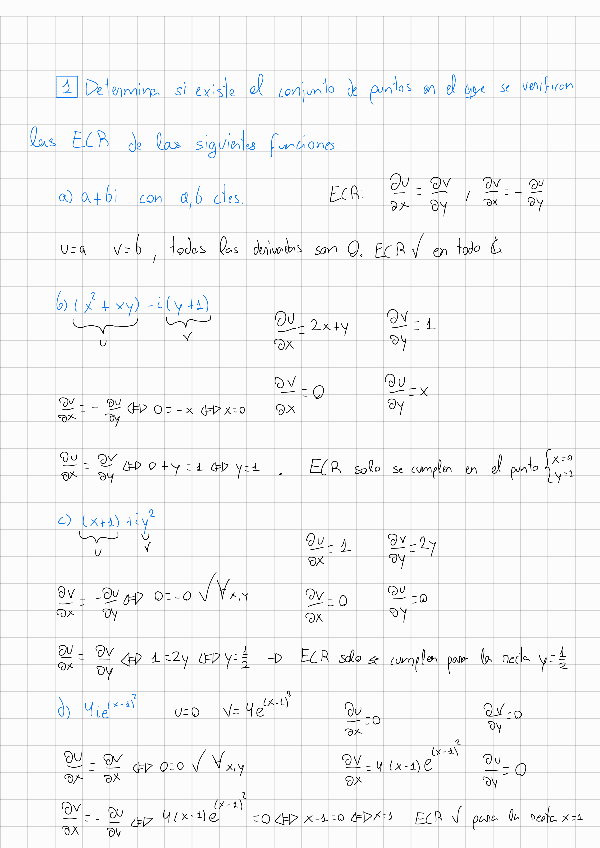 1 Determina si existe el conjunto de puntos en el que se verifican
las ECR de las siguientes funciones
a) a+bi con a,b ctes. ECR. ∂u/∂x = ∂v/∂y , ∂v/∂x = - ∂u/∂y
u=a v=b , todas las derivadas son 0. ECR √ en todo ℂ
b) (x² + xy) - i(y+1) ∂u/∂x = 2x+y ∂v/∂y = 1
u v
∂v/∂x = 0 ∂u/∂y = x
∂v/∂x = - ∂u/∂y ⇔ 0=-x ⇔ x=0
∂u/∂x = ∂v/∂y ⇔ 0+y=1 ⇔ y=1 . ECR solo se cumplen en el punto { x=0 y=1
c) (x+1) + iy² ∂u/∂x = 1 ∂v/∂y = 2y
u v
∂v/∂x = -∂u/∂y ⇔ 0=-0 √ ∀x,y ∂v/∂x = 0 ∂u/∂y = 0
∂u/∂x = ∂v/∂y ⇔ 1=2y ⇔ y=1/2 → ECR solo se cumplen para la recta y=1/2
d) 4ie^(x-1)² u=0 v=4e^(x-1)² ∂u/∂x = 0 ∂v/∂y = 0
∂u/∂x = ∂v/∂x ⇔ 0=0 √ ∀x,y ∂v/∂x = 4(x-1)e^(x-1)² ∂u/∂y = 0
∂v/∂x = - ∂u/∂y ⇔ 4(x-1)e^(x-1)² = 0 ⇔ x-1=0 ⇔ x=1 ECR √ para la recta x=1